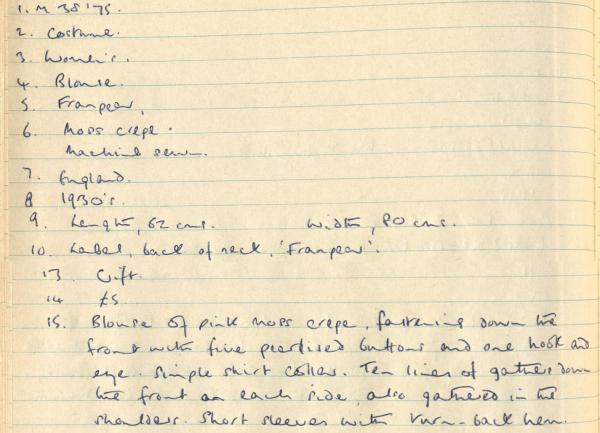 1. M 38'75.
2. Costume.
3. Women's.
4. Blouse.
5. Franpear,
6. Moss crepe.
Machine sewn.
7. England.
8 1930's.
9. Length, 62 cms. Width, 80 cms.
10. Label, back of neck, 'Franpear'.
13. Gift.
14 £5
15. Blouse of pink moss crepe, fastening down the
front with five pearlised buttons and one hook and
eye. Simple shirt collar. Ten lines of gathers down
the front on each side, also gathered in the
shoulders. Short sleeves with turn-back hem.